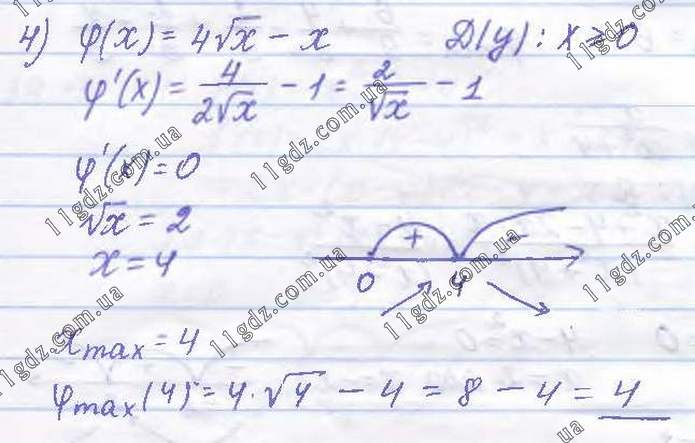 4) φ(x) = 4√x - x D(y): x ≥ 0
φ'(x) = 4/(2√x) - 1 = 2/√x - 1
φ'(x) = 0
√x = 2
x = 4
+ -
0 4
xmax = 4
φmax(4) = 4·√4 - 4 = 8 - 4 = 4
11gdz.com.ua
11gdz.com.ua
11gdz.com.ua
11gdz.com.ua
11gdz.com.ua
11gdz.com.ua
11gdz.com.ua
11gdz.com.ua
11gdz.com.ua
ua